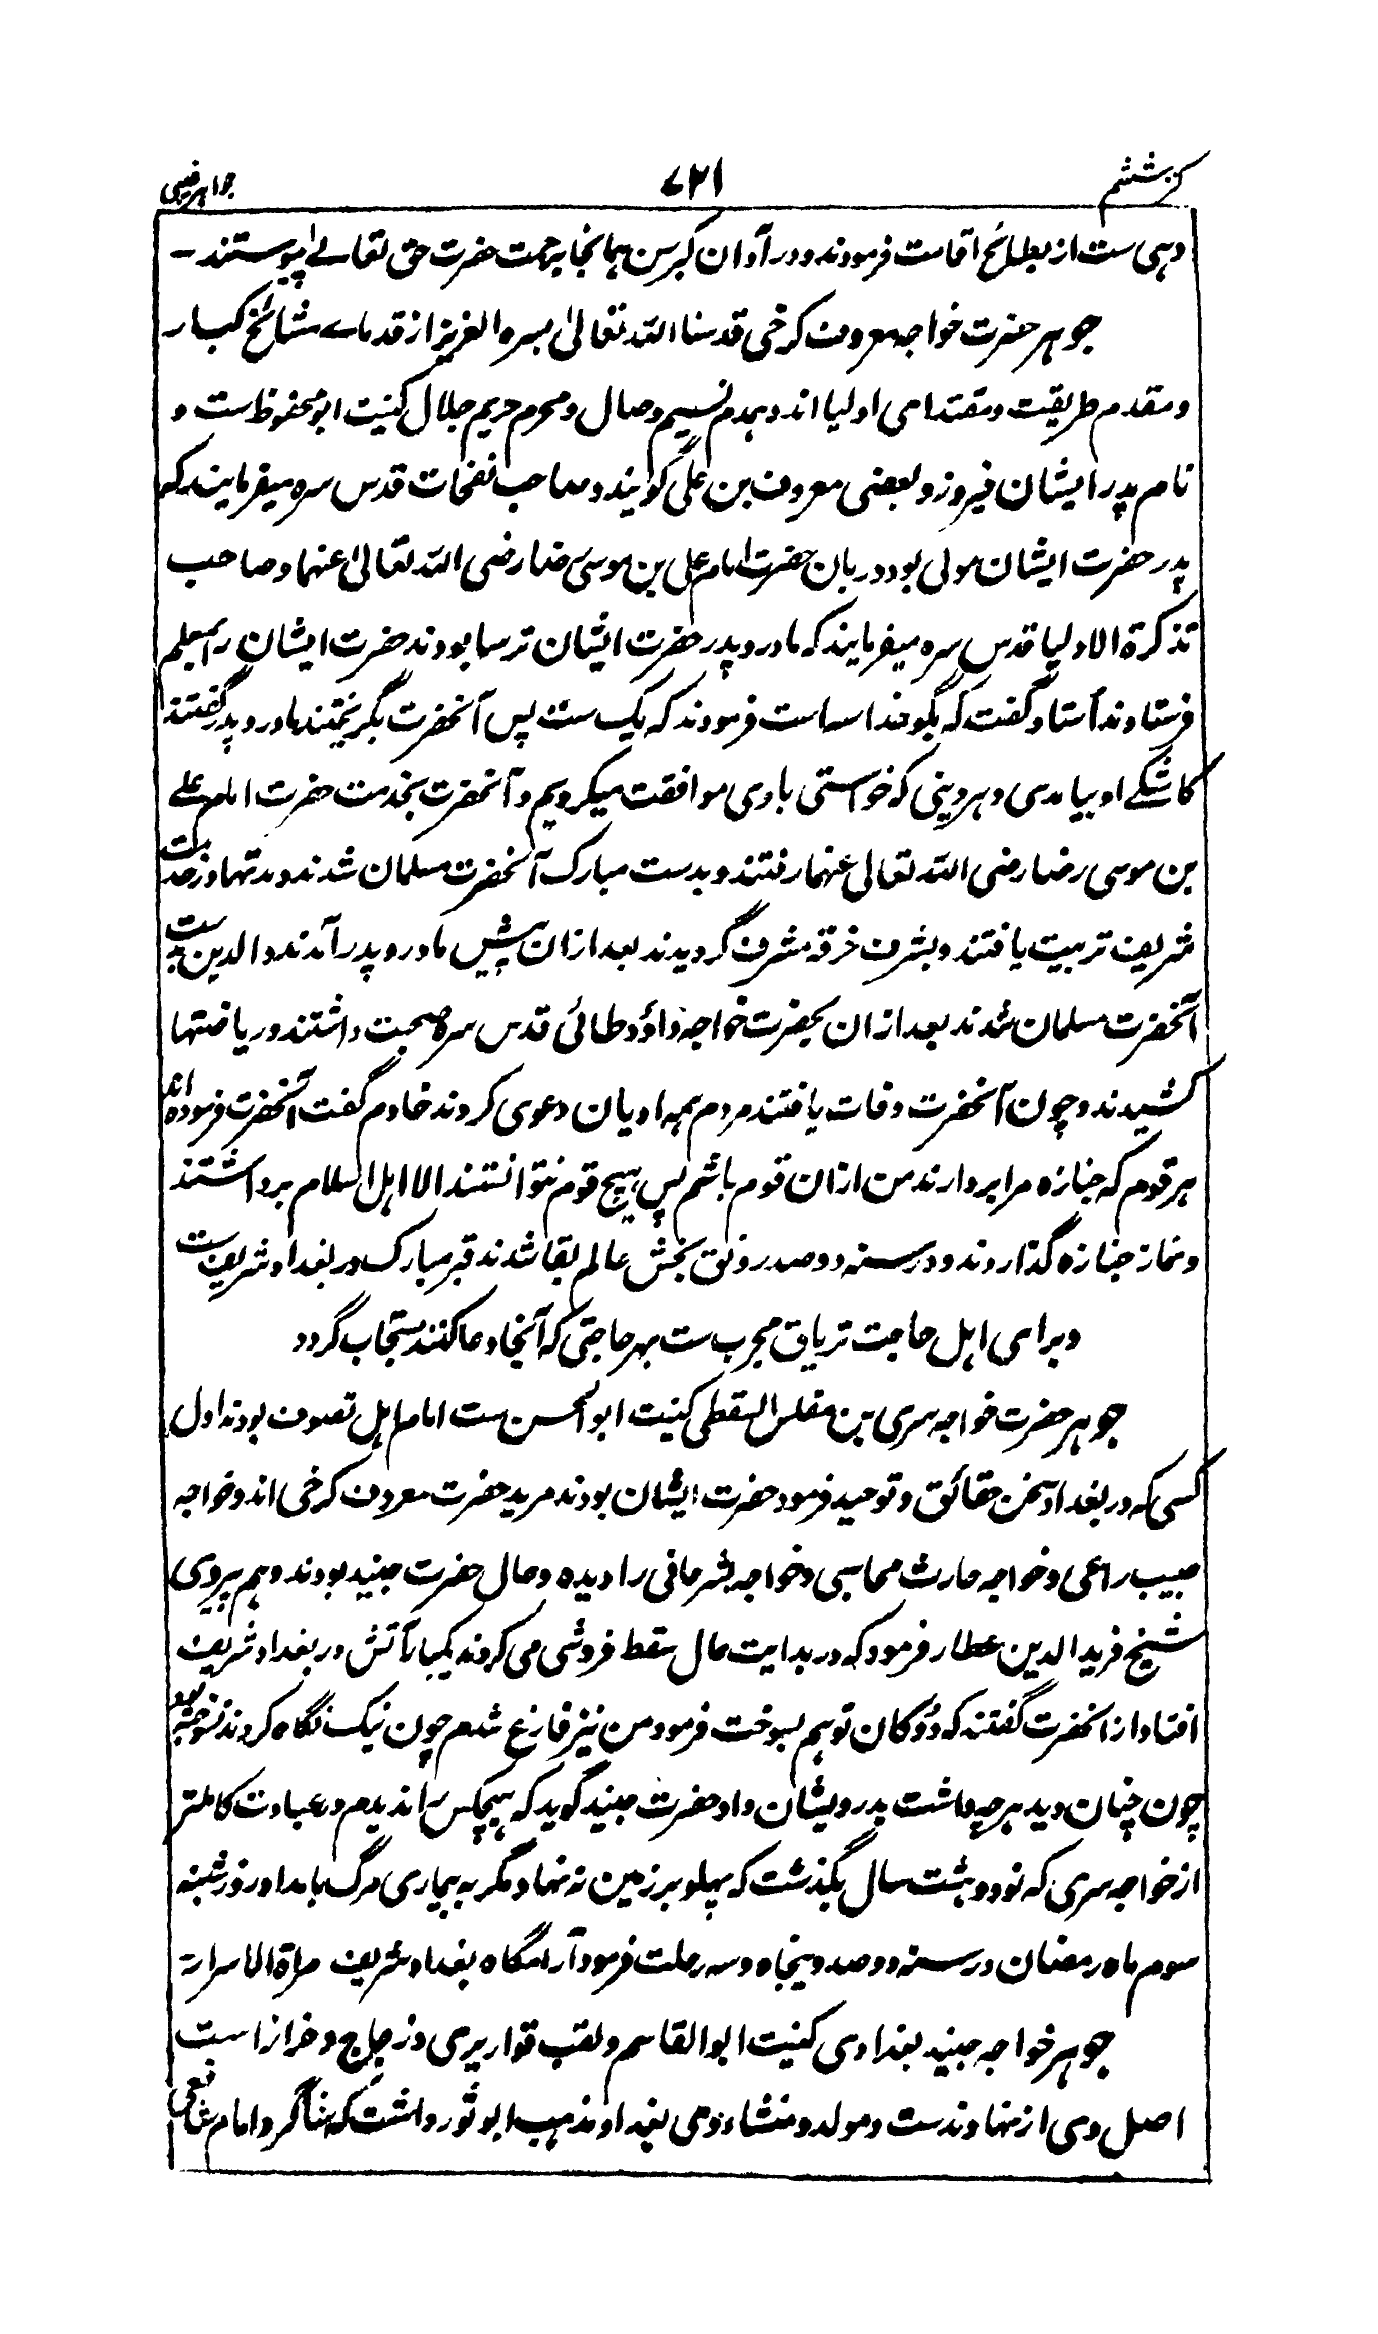 کنز ششم ۷۲۱ جواهر غیبی
دهی ست از بطائح اقامت فرمودند و در آوان کبر سن همانجا برحمت حضرت حق تعالے پیوستند ـ
جوهر حضرت خواجه معروف کرخی قدسنا الله تعالیٰ بسره العزیز از قدمای مشائخ کبار
و مقدم طریقت و مقتدامی اولیا اند و همدم نسیم وصال و محرم حریم جلال کنیت ابو محفوظ ست و
نام پدر ایشان فیروز و بعضی معروف بن علی گویند و صاحب نفحات قدس سره میفرمایند که
پدر حضرت ایشان مولی بود دربان حضرت امام علی بن موسی رضا رضی الله تعالیٰ عنهما و صاحب
تذکرة الاولیا قدس سره میفرمایند که مادر و پدر حضرت ایشان ترسا بودند حضرت ایشان را بمعلم
فرستادند استاد گفت که بگو خدا سه است فرمودند که یک ست پس آنحضرت بگریختند مادر و پدر گفتند
کاشکے او بیامدی و هر دینی که خواستی با وی موافقت میکردیم و آنحضرت بخدمت حضرت امام علے
بن موسی رضا رضی الله تعالی عنهما رفتند و بدست مبارک آنحضرت مسلمان شدند و مدتها در خدمت
شریف تربیت یافتند و بشرف خرقه مشرف گردیدند بعد ازان پیش مادر و پدر آمدند والدین بدست
آنحضرت مسلمان شدند بعد ازان بحضرت خواجه داؤد طائی قدس سره صحبت داشتند و ریاضتها
کشیدند و چون آنحضرت وفات یافتند مردم همه ادیان دعوی کردند خادم گفت آنحضرت فرموده اند
هر قوم که جنازه مرا بردارند من ازان قوم باشم پس هیچ قوم نتوانستند الا اهل اسلام برداشتند
و نماز جنازه گذاردند و در سنه دو صد رونق بخش عالم بقا شدند قبر مبارک در بغداد شریف ست
و برای اهل حاجت تریاق مجرب ست بهر حاجتی که آنجا دعا کنند مستجاب گردد
جوهر حضرت خواجه سری بن مفلس السقطی کنیت ابوالحسن ست امام اهل تصوف بودند اول
کسی که در بغداد سخن حقائق و توحید فرمود حضرت ایشان بودند مرید حضرت معروف کرخی اند و خواجه
حبیب راعی و خواجه حارث محاسبی و خواجه بشر حافی را دیده و خال حضرت جنید بودند و هم پیروی
شیخ فرید الدین عطار فرمود که در بدایت حال سقط فروشی می کردند یکبار آتش در بغداد شریف
افتاد از آنحضرت گفتند که دوکان تو هم بسوخت فرمود من نیز فارغ شدم چون نیک نگاه کردند نسوخته بود
چون چنان دید هر چه داشت بدرویشان داد حضرت جنید گوید که هیچکس را ندیدم در عبادت کاملتر
از خواجه سری که نود و هشت سال بگذشت که پهلو بر زمین نه نهاد مگر به بیماری مرگ بامداد روز شنبه
سوم ماه رمضان در سنه دو صد و پنجاه و سه رحلت فرمود آرامگاه بغداد شریف مراة الاسرار ـ
جوهر خواجه جنید بغدادی کنیت ابوالقاسم و لقب قواریری و زجاج و خراز است
اصل وی از نهاوند ست و مولد و منشاء وی بغداد و مذهب ابو ثور داشت که شاگرد امام شافعی